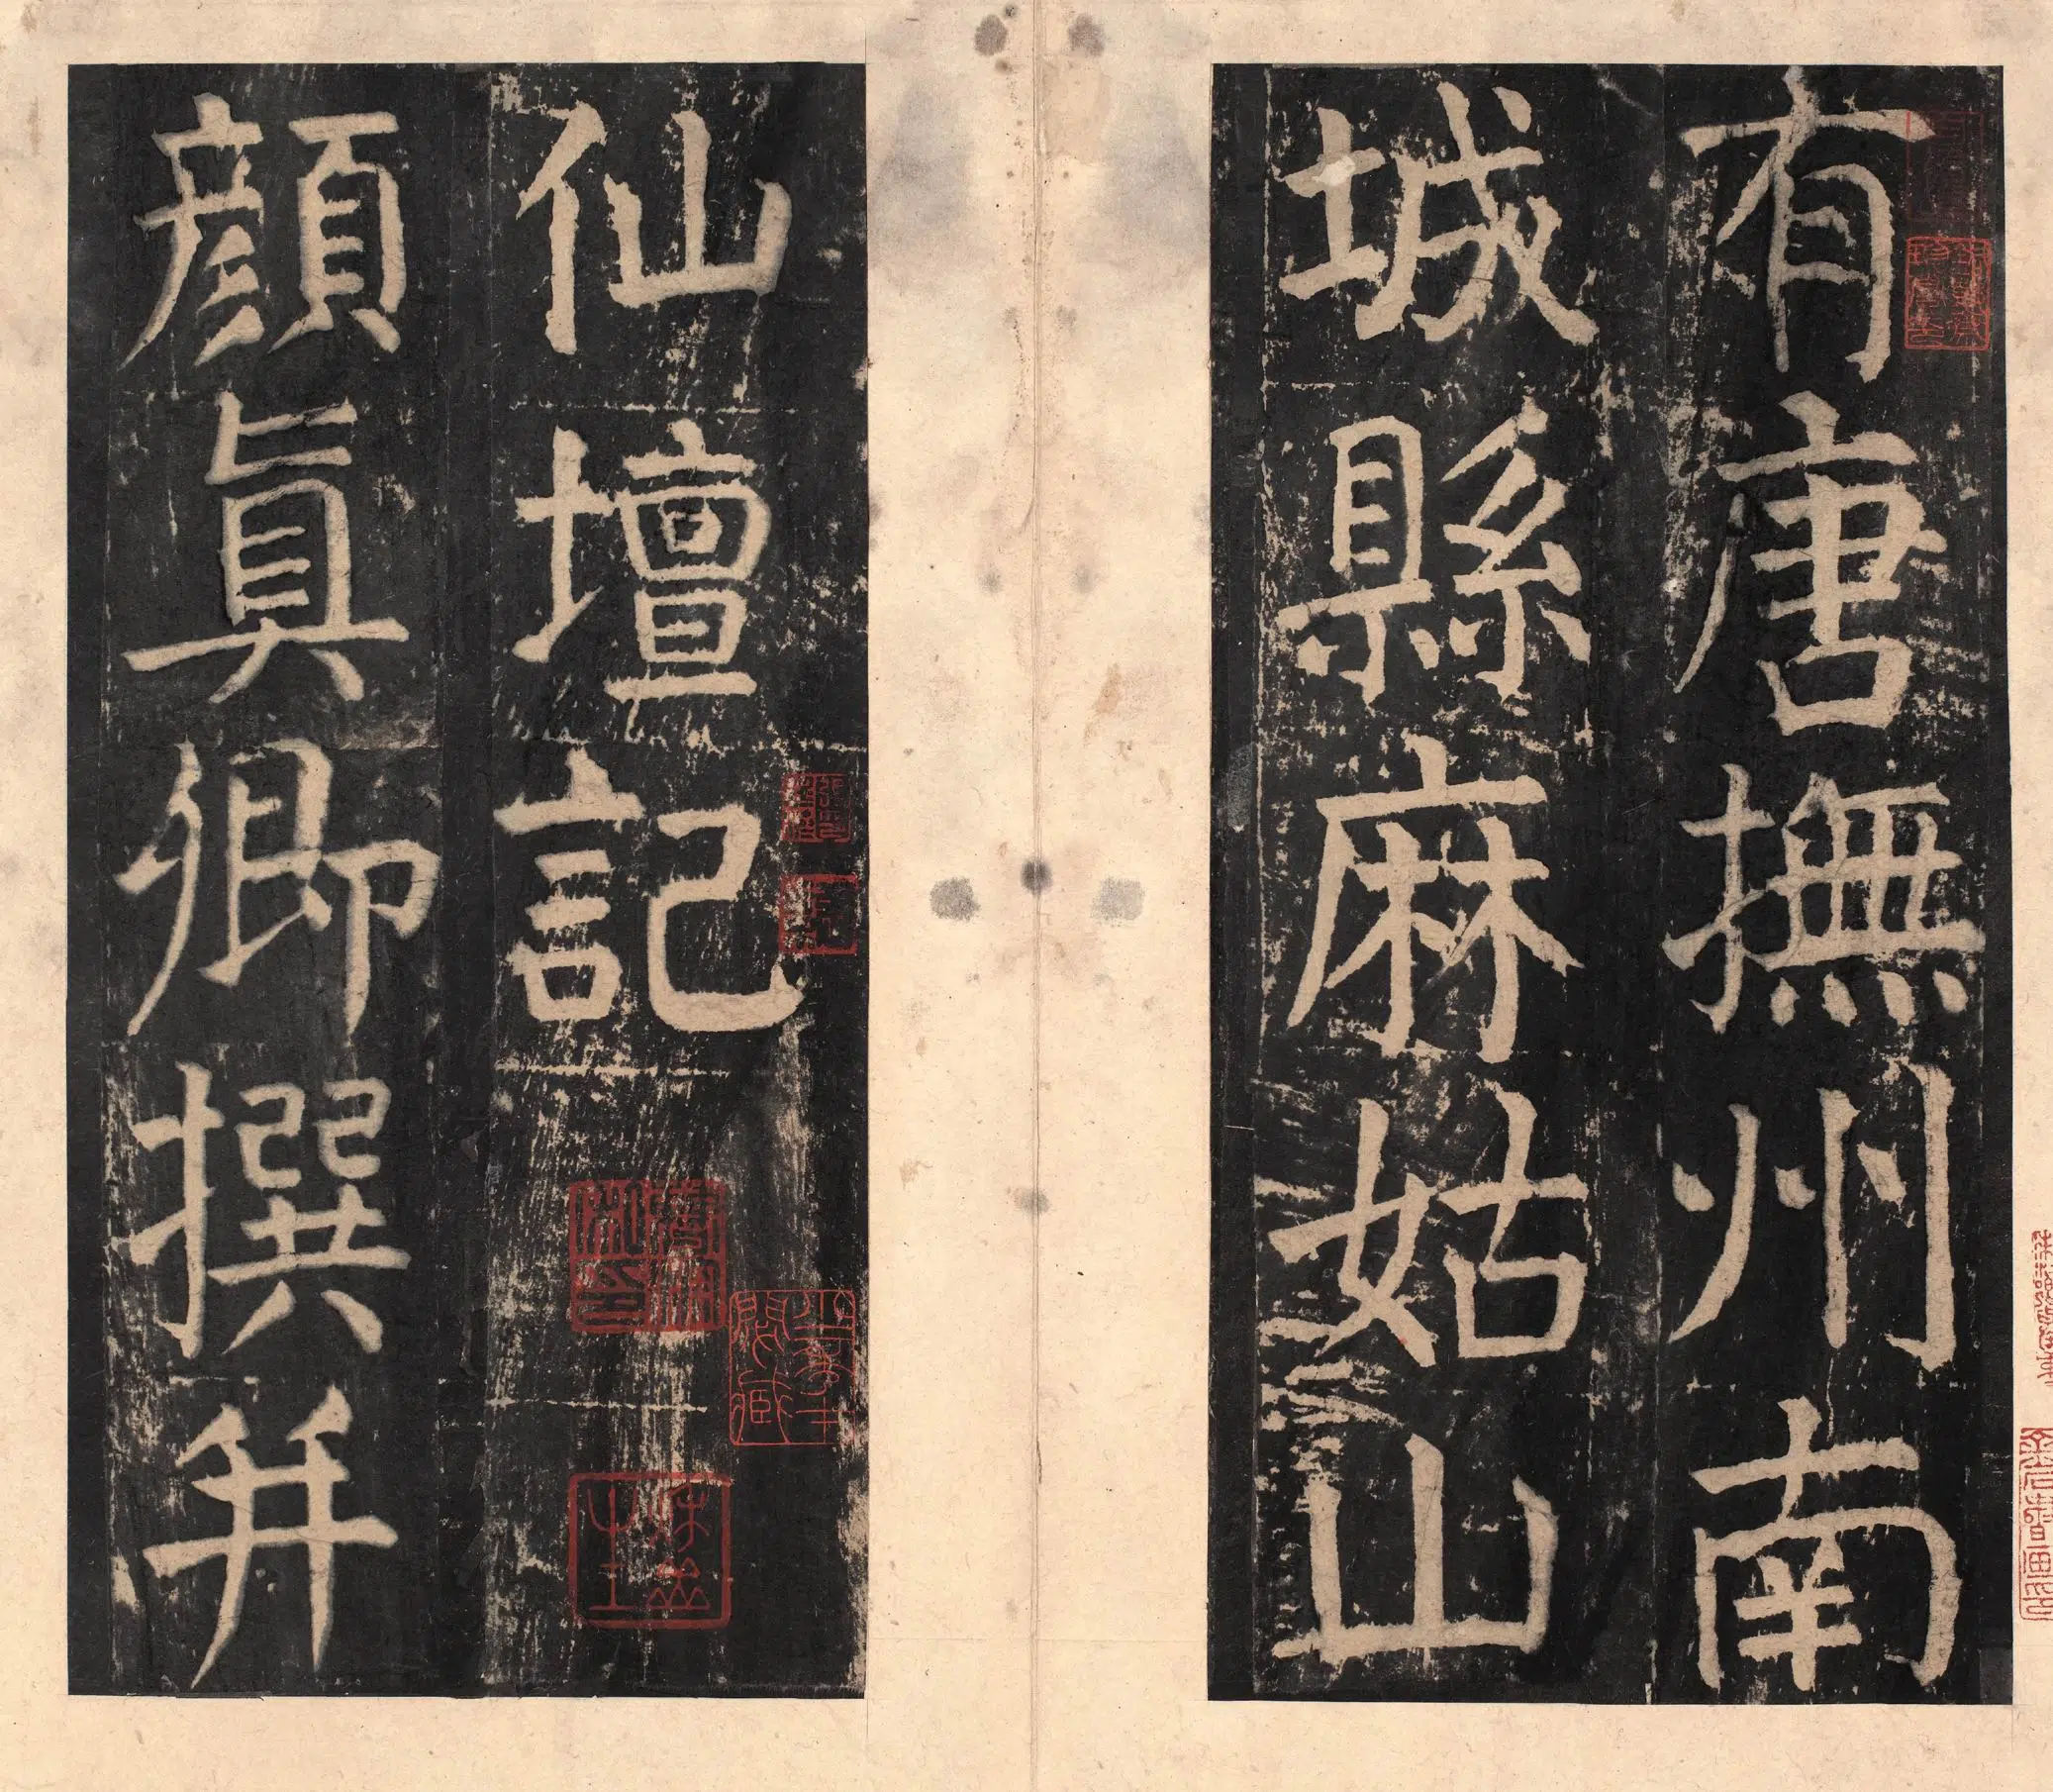 有唐撫州南
城縣麻姑山
仙壇記
顏眞卿撰并